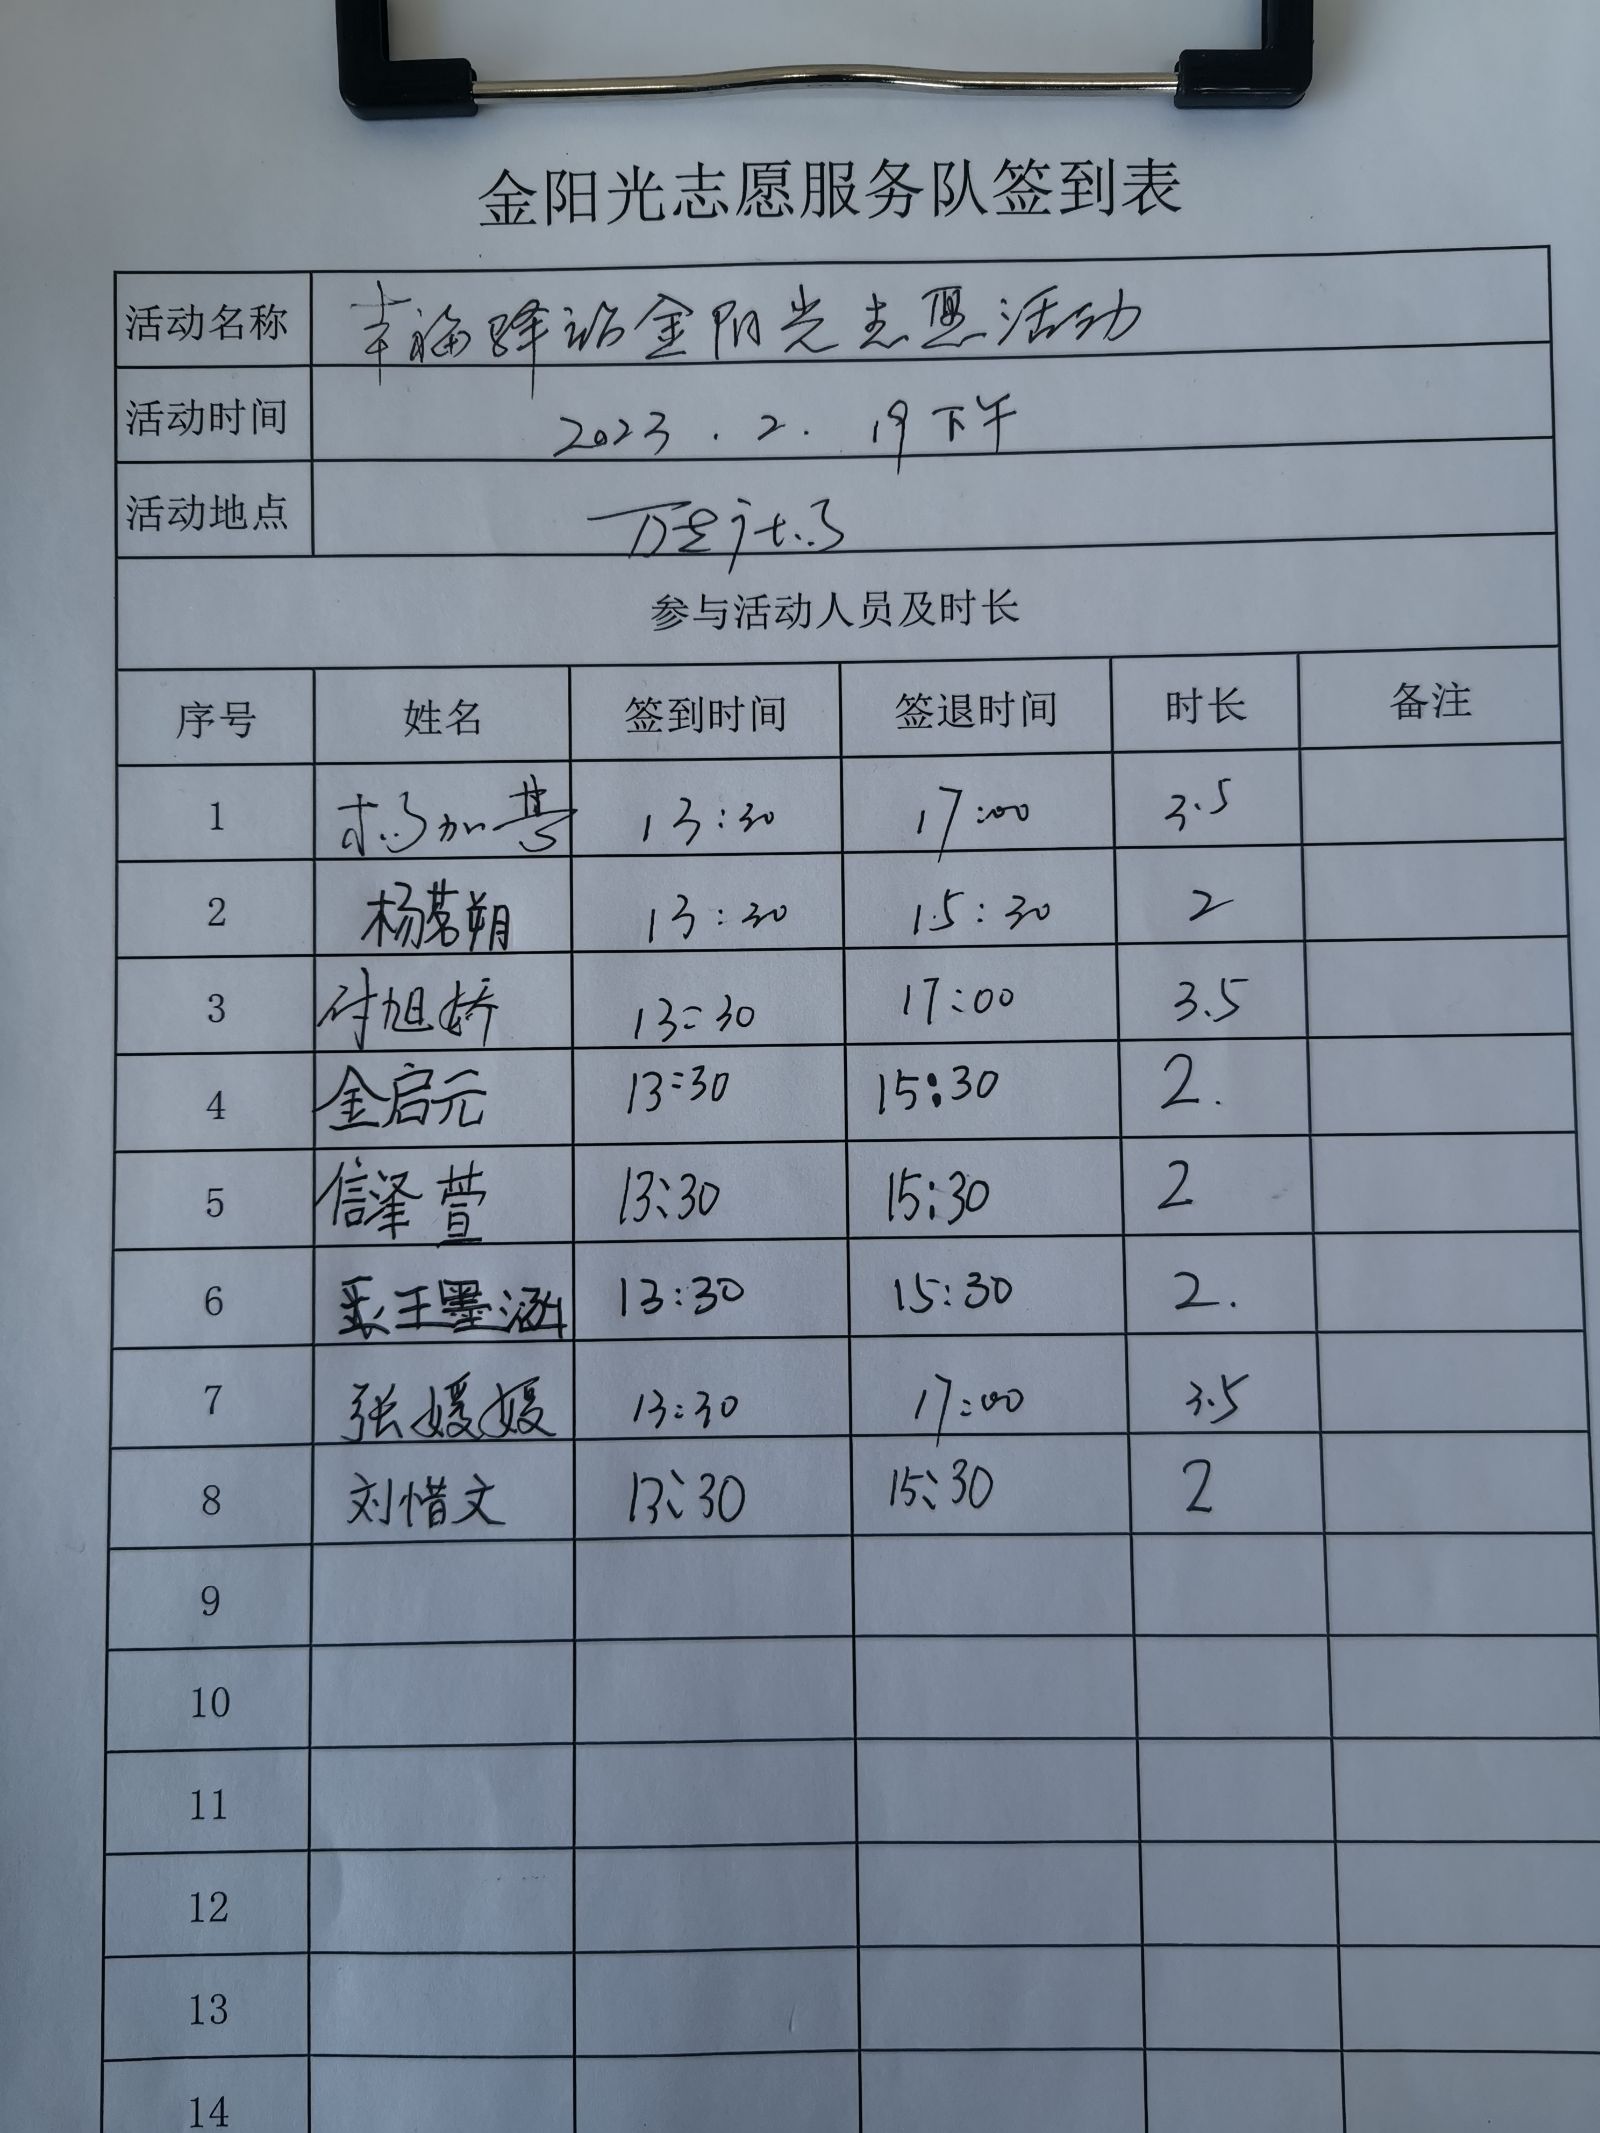 金阳光志愿服务队签到表
活动名称 幸福驿站金阳光志愿活动
活动时间 2023.2.19下午
活动地点 万达广场
参与活动人员及时长
序号 姓名 签到时间 签退时间 时长 备注
1 杨加 13:30 17:00 3.5
2 杨茗朔 13:30 15:30 2
3 付旭娇 13:30 17:00 3.5
4 金启元 13:30 15:30 2.
5 信泽萱 13:30 15:30 2
6 王墨涵 13:30 15:30 2.
7 张媛媛 13:30 17:00 3.5
8 刘惜文 13:30 15:30 2
9
10
11
12
13
14